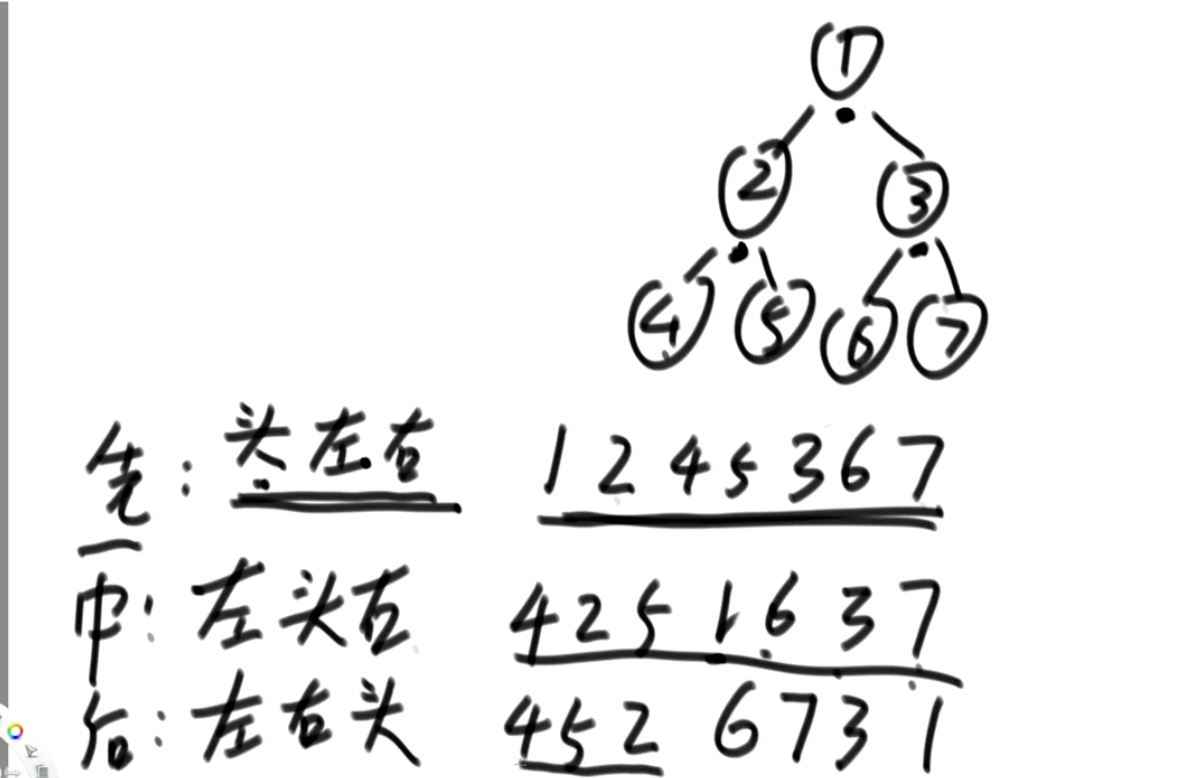 1
2 3
4 5 6 7
先: 头左右 1 2 4 5 3 6 7
中: 左头右 4 2 5 1 6 3 7
后: 左右头 4 5 2 6 7 3 1